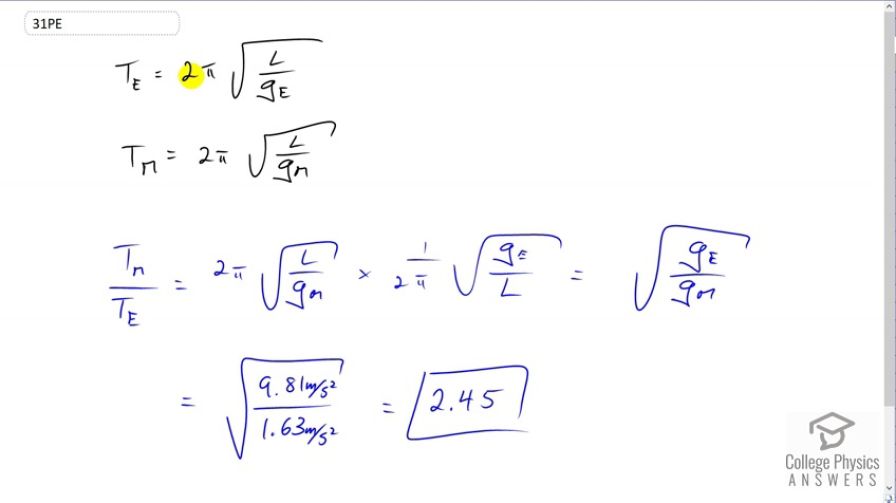 31PE
T_E = 2π √(L/g_E)
T_m = 2π √(L/g_m)
T_m/T_E = 2π √(L/g_m) × 1/2π √(g_E/L) = √(g_E/g_m)
= √(9.81m/s²/1.63m/s²) = 2.45
College Physics
ANSWERS